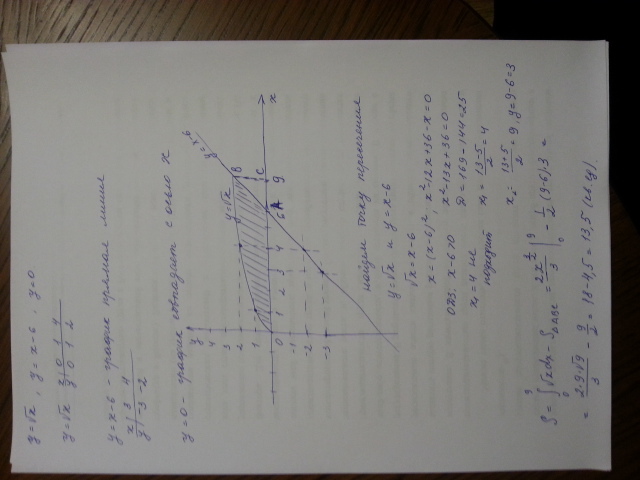 y=√x, y=x-6, y=0
y=√x x|0 1 4
y|0 1 2
y=x-6 - график прямая линия
x|3 4
y|-3 -2
y=0 - график совпадает с осью x
y
4
3
2
1
0
-1
-2
-3
1 2 3 4 6 9
x
y=√x
y=x-6
A
B
C
найдем точку пересечения
y=√x и y=x-6
√x=x-6
x=(x-6)², x²-12x+36-x=0
ОДЗ. x-6≥0 x²-13x+36=0
D=169-144=25
x₁=4 не x₁=(13-5)/2=4
подходит
x₂=(13+5)/2=9, y=9-6=3
S=∫₀⁹√xdx - S▵ABC = 2x^(3/2)/3 |₀⁹ - 1/2(9-6)·3 =
= 2·9·√9/3 - 9/2 = 18-4,5=13,5 (кв.ед).